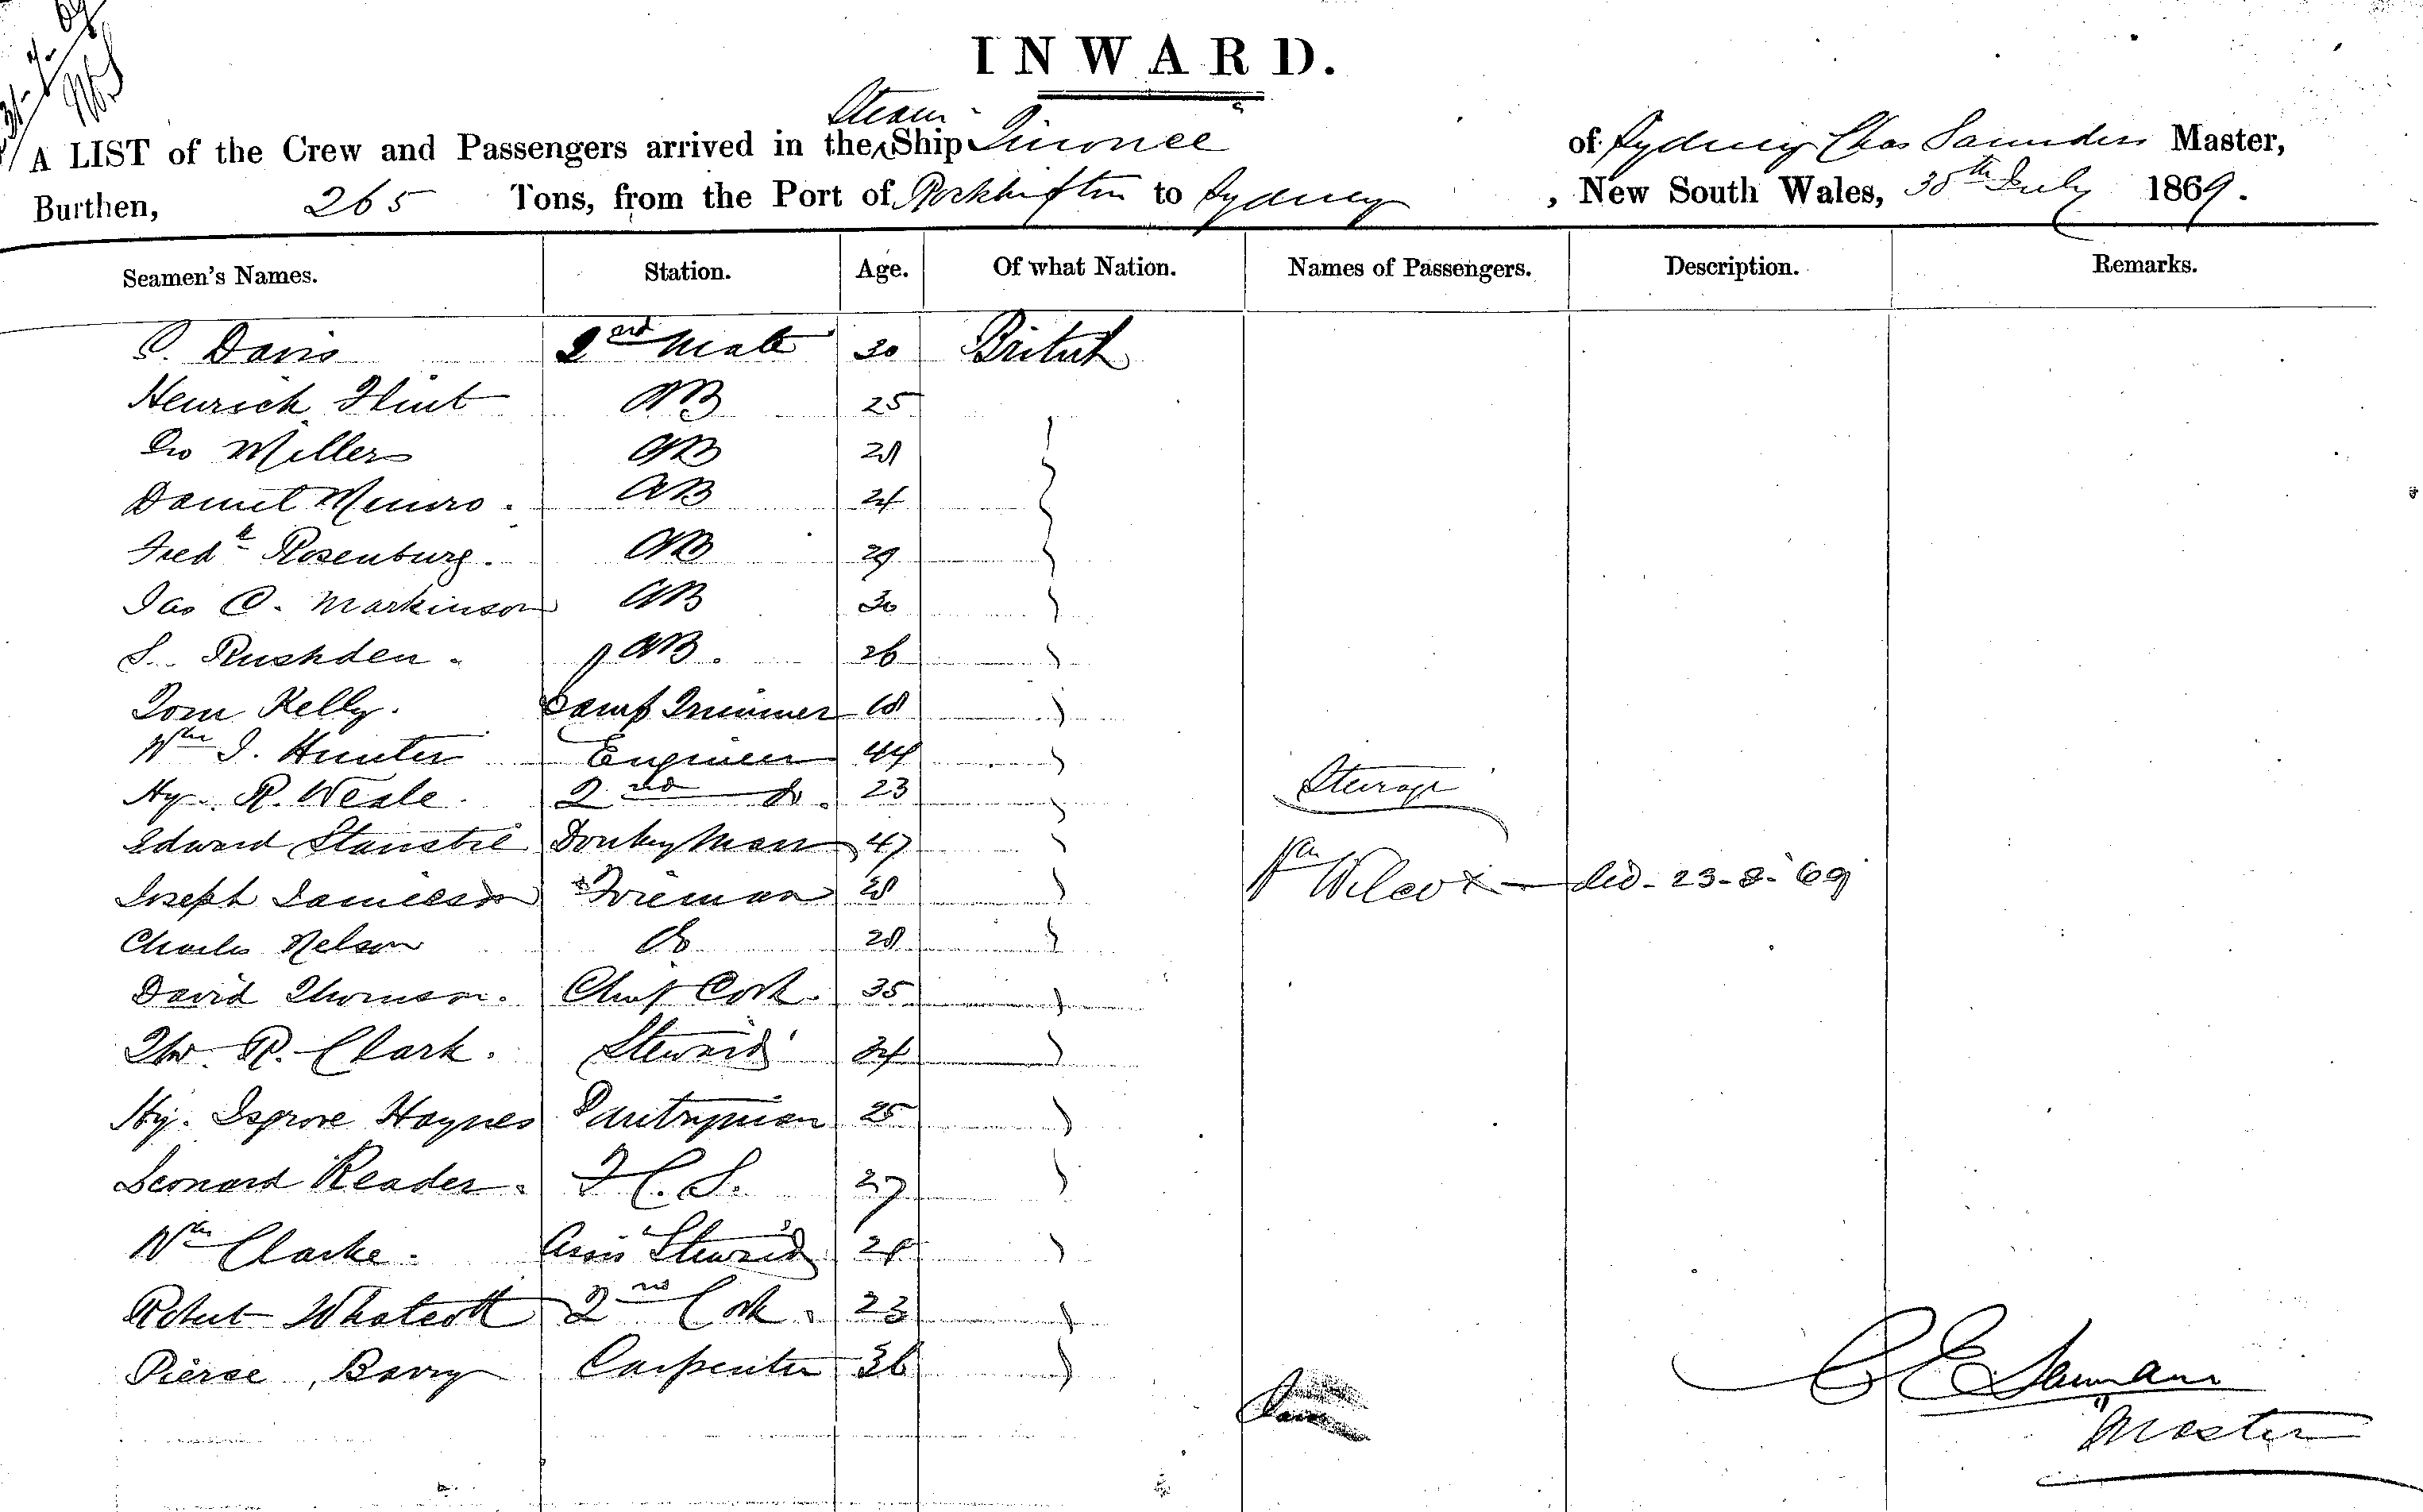 INWARD.
Steam
A LIST of the Crew and Passengers arrived in the Ship "Tinonee" of Sydney Chas Saunders Master,
Burthen, 265 Tons, from the Port of Rockhampton to Sydney, New South Wales, 30th July 1869.
Seamen's Names. Station. Age. Of what Nation. Names of Passengers. Description. Remarks.
C. Davis 2nd Mate 30 British
Henrich Flint AB 25
Miller AB 28
Daniel Munro. AB 24
Fredk Rosenburg. AB 29
Jas C. Markinson AB 30
S. Rushden. AB. 26
Tom Kelly. Lamp Trimmer 18
Wm J. Hunter Engineer 44
Hy. R. Weale. 2nd Do. 23
Steerage
Edward Donkeyman 47
Wm Wilcox - 23-8-69
Joseph Jamieson Fireman 28
Charles Nelson Do 28
David Thomson. Chief Cook. 35
Tho. R. Clark. Steward 34
Hy. Isgrove Haynes Pantryman 25
Leonard Reader. F.C.S. 27
Wm Clarke. Assis Steward 28
Robert Whatcott 2nd Cook. 23
Pierce Barry Carpenter 36
C E Saunders
Master